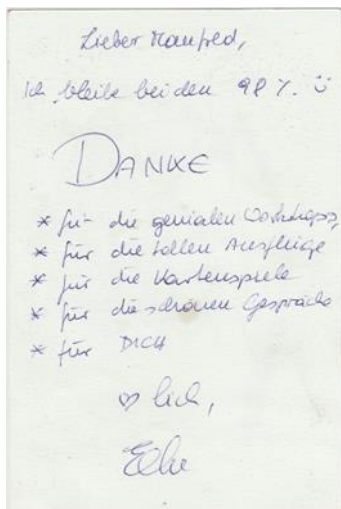 Lieber Manfred,
Ich bleibe bei den 98 %. ü
DANKE
* für die genialen Workshops,
* für die tollen Ausflüge
* für die Kartenspiele
* für die schönen Gespräche
* für DICH
♡ lich,
Elke